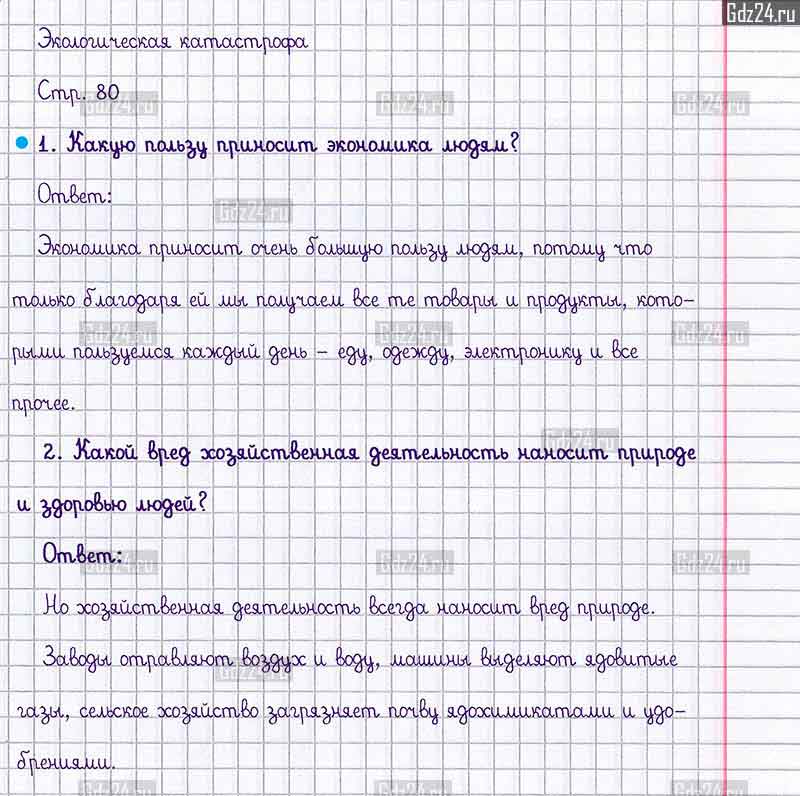 Gdz24.ru
Экологическая катастрофа
Стр. 80
1. Какую пользу приносит экономика людям?
Ответ:
Экономика приносит очень большую пользу людям, потому что
только благодаря ей мы получаем все те товары и продукты, кото-
рыми пользуемся каждый день - еду, одежду, электронику и все
прочее.
2. Какой вред хозяйственная деятельность наносит природе
и здоровью людей?
Ответ:
Но хозяйственная деятельность всегда наносит вред природе.
Заводы отравляют воздух и воду, машины выделяют ядовитые
газы, сельское хозяйство загрязняет почву ядохимикатами и удо-
брениями.